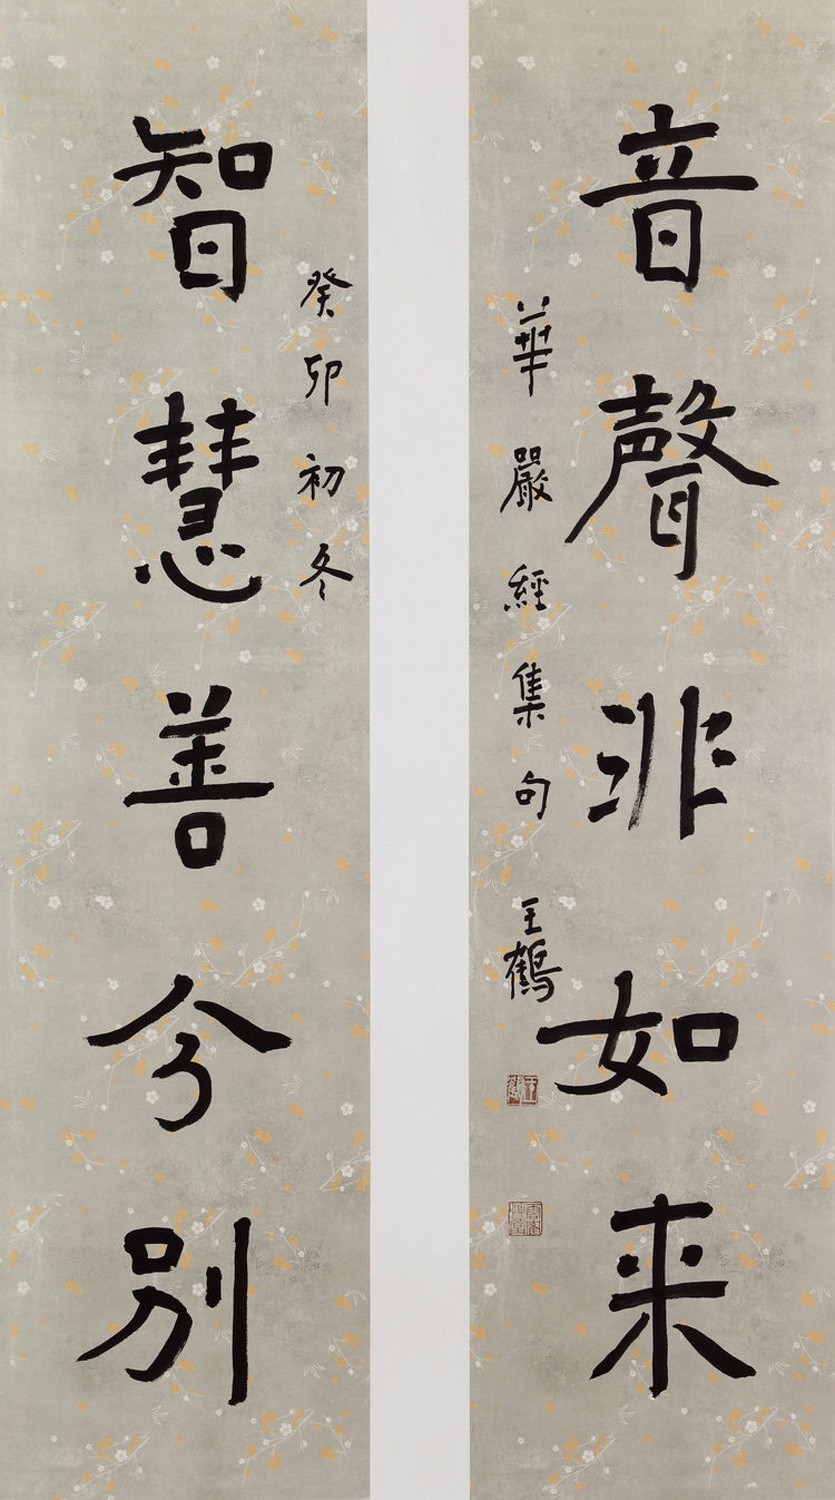 音聲非如来
華嚴經集句
王鶴
王鶴
智慧善分別
癸卯初冬